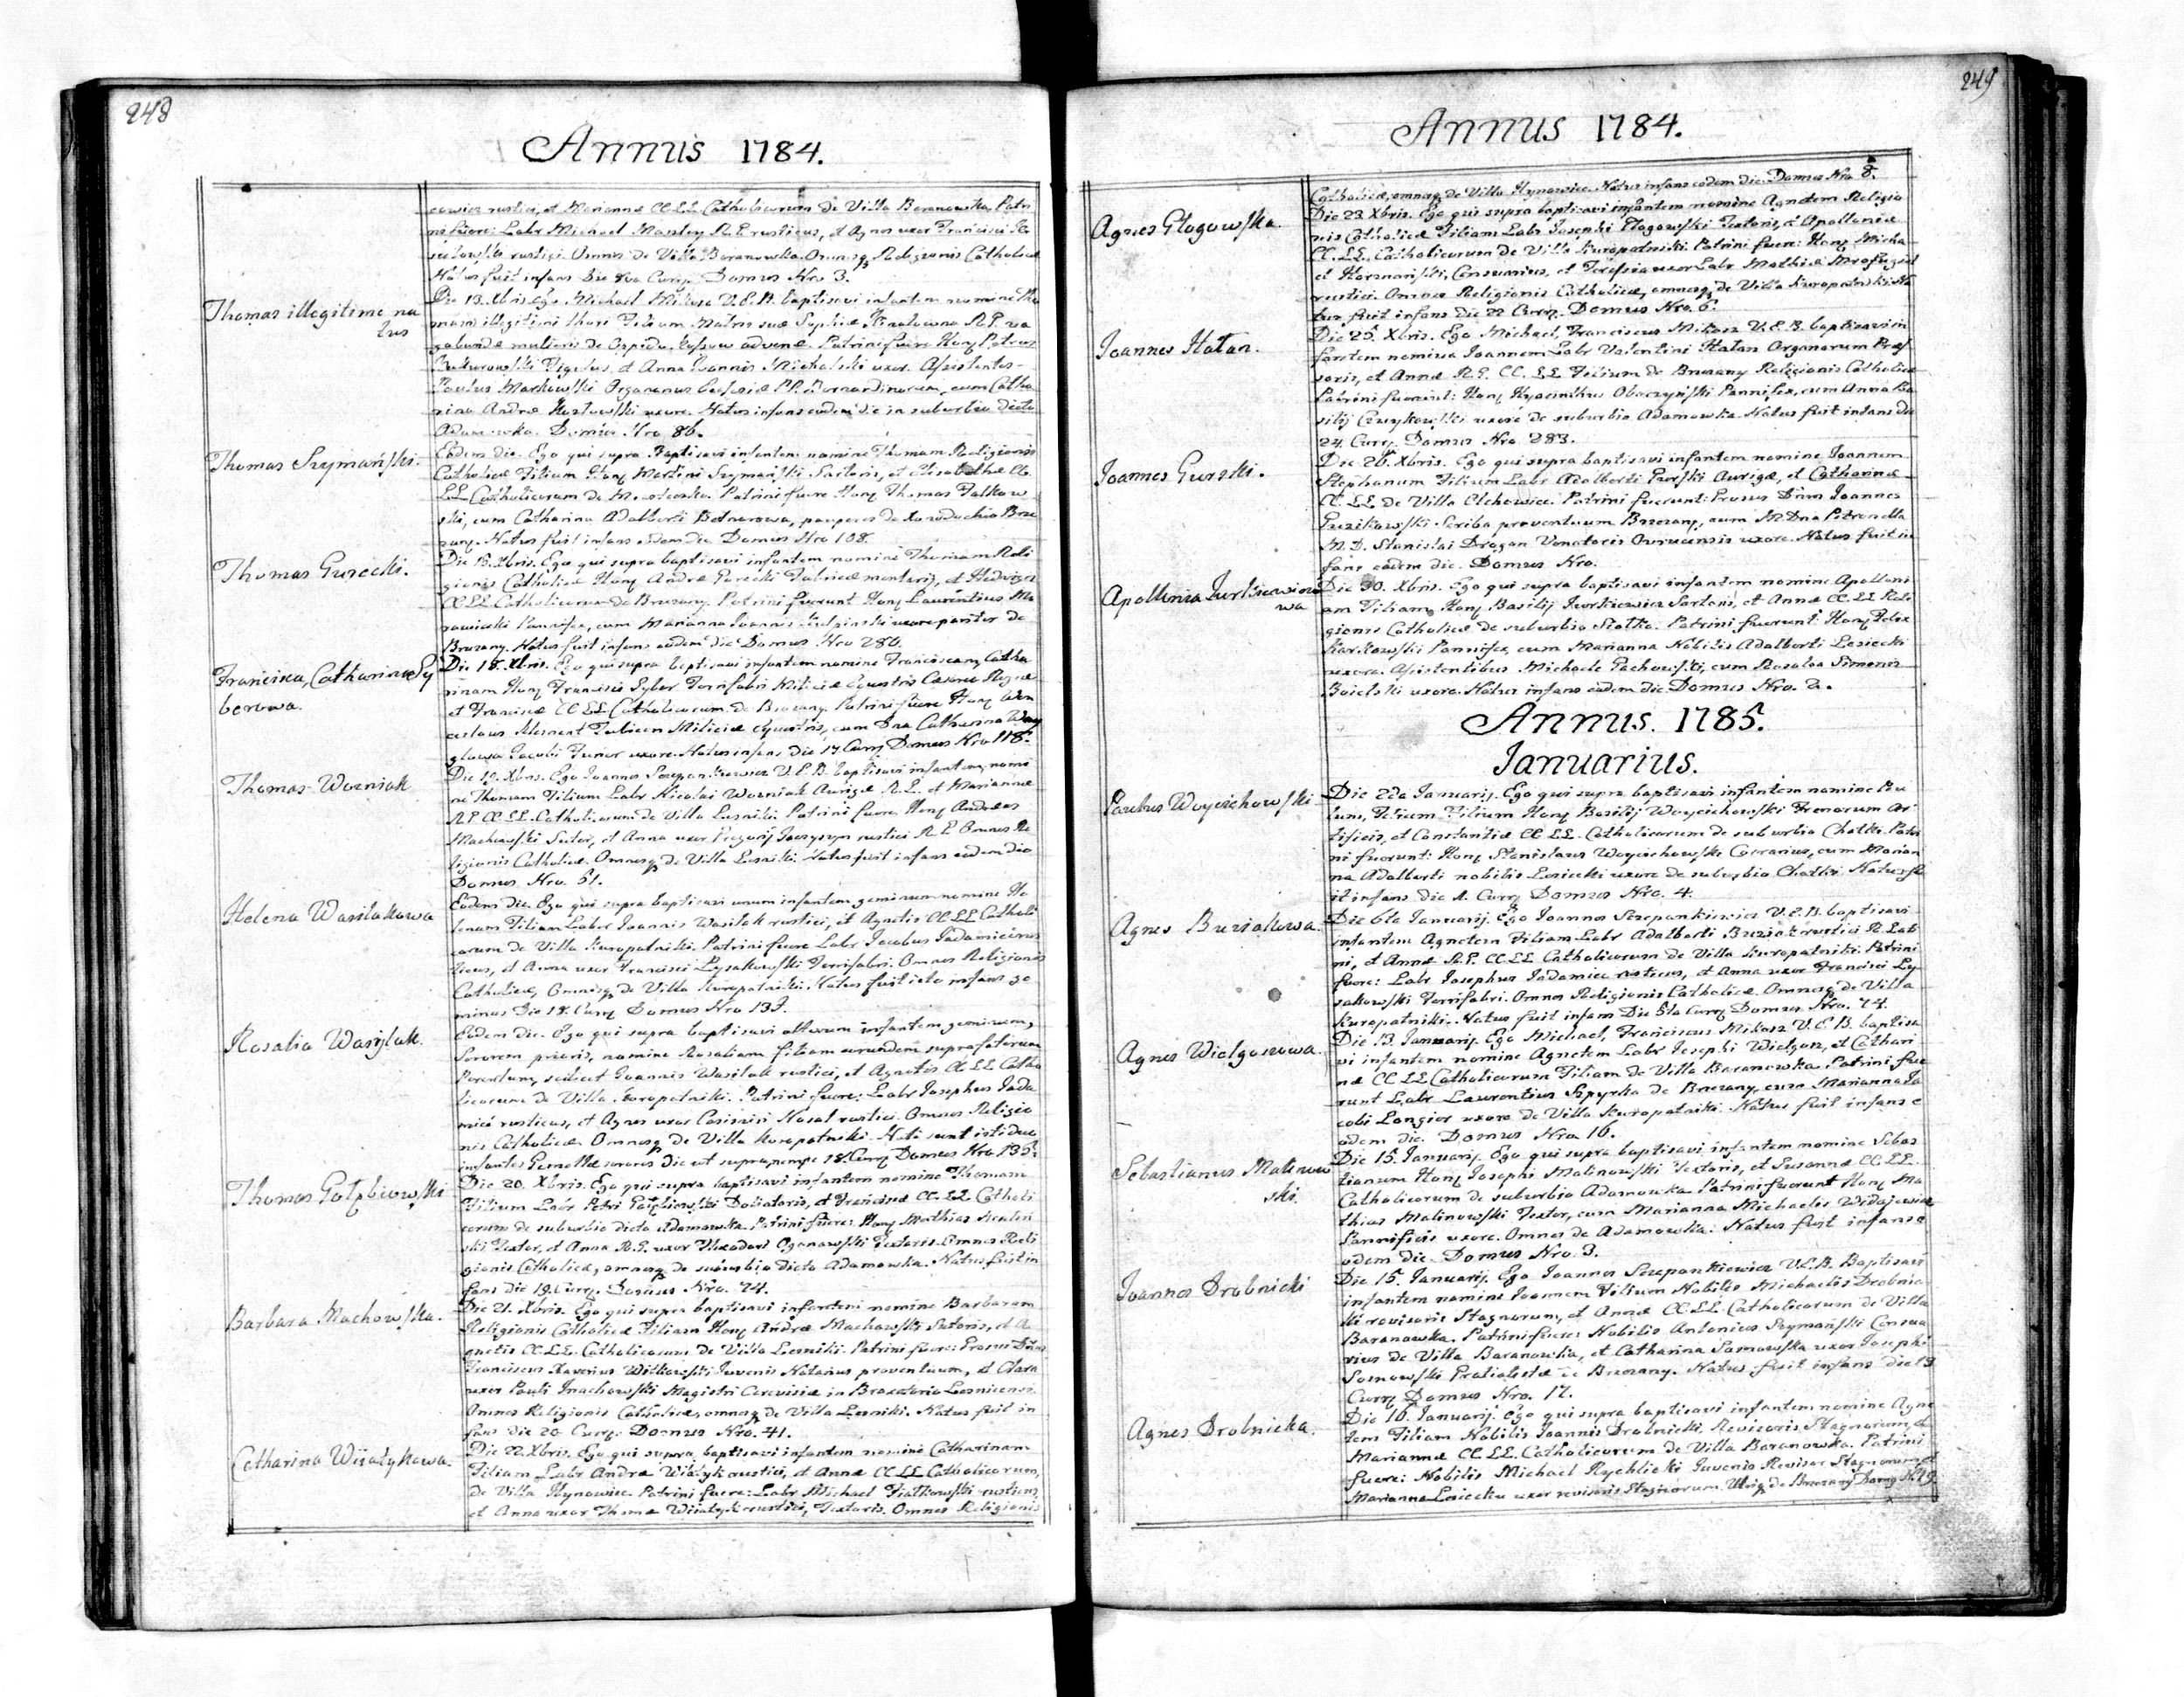 248
Annus 1784.
cowicz rustici, et Mariannæ CC.LL. Catholicorum de Villa Baranowka. Patri
ni fuere: Labr Michael R.L. rusticus, et Agnes uxor Francisci
rustici. Omnes de Villa Baranowka. Omnesq Religionis Catholicæ
Natus fuit infans Die 8va Curr. Domus Nro 3.
Thomas illegitime na
tus
Die 18. Xbris Ego Michael Mikosz V.E.B. baptisavi infantem nomine Tho
mam illegitimi thori Filium Matris suæ Sophiæ R.L. va
gabundæ mulieris de Oppido advenæ. Patrini fuere Hon Petrus
Figulus, et Anna Joannis Michalski uxor. Assistentes
Paulus Markowski Organarius PP. Bernardinorum, cum Catha
rina Andreæ Kozłowski uxore. Natus infans eadem die in suburbio dicto
Adamowka. Domus Nro 86.
Thomas Szymański.
Eadem die. Ego qui supra Baptisavi infantem nomine Thomam Religionis
Catholicæ Filium Hon Martini Szymański Sartoris, et Elisabethæ CC.
LL. Catholicorum de. Patrini fuere Hon Thomas Falkow
ski, cum Catharina Adalberti Bednarowa, pauperes de Brze
zany. Natus fuit infans eodem die. Domus Nro 108.
Thomas Gurecki.
Die 18. Xbris. Ego qui supra baptisavi infantem nomine Thomam Reli
gionis Catholicæ Hon Andreæ Gurecki, et Hedvigis
CC.LL. Catholicorum de Brzezany. Patrini fuerunt Hon Laurentius Ma
Pannifex, cum Marianna Joannis uxore pariter de
Brzezany. Natus fuit infans eadem die Domus Nro 280.
Francisca, Catharina Sy
berowa.
Die 18. Xbris. Ego qui supra baptisavi infantem nomine Franciscam, Catha
rinam Hon Francisci Syber Ferrifabri Militiæ Equestris Cæsareo Regiæ
et Franciscæ CC.LL. Catholicorum de Brzezany. Patrini fuere Hon Wen
ceslaus Klement Tubicen Militiæ Equestris, cum Dna Catharina
Jacobi uxore. Natus infans die 17 Curr. Domus Nro 118.
Thomas Wozniak
Die 19. Xbris. Ego Joannes Szczepankiewicz V.E.B. baptisavi infantem nomi
ne Thomam Filium Labr Nicolai Wozniak Aurigæ R.L. et Mariannæ
R.G. CC.LL. Catholicorum de Villa Lesniki. Patrini fuere Hon Andreas
Machowski Sutor, et Anna uxor Gregorij rustici R.G. Omnes Re
ligionis Catholicæ. Omnesq de Villa Lesniki. Natus fuit infans eadem die
Domus Nro. 51.
Helena Wasilakowa
Eadem die. Ego qui supra baptisavi unum infantem geminum nomine He
lenam Filiam Labr Joannis Wasilak rustici, et Agnetis CC.LL. Catholi
corum de Villa Kuropatniki. Patrini fuere Labr Jacobus Jadamicirus
ticus, et Anna uxor Francisci Lysakowski Ferrifabri. Omnes Religionis
Catholicæ, Omnesq de Villa Kuropatniki. Natus fuit iste infans ge
minus Die 18. Curr. Domus Nro 133.
Rosalia Wasylak.
Eadem die. Ego qui supra baptisavi alterum infantem geminum,
Sororem prioris, nomine Rosaliam filiam eorundem suprafatorum
Parentum, scilicet Joannis Wasilak rustici, et Agnetis CC.LL. Catho
licorum de Villa Kuropatniki. Patrini fuere: Labr Josephus Jada
mici rusticus, et Agnes uxor Casimiri Nosal rustici. Omnes Religio
nis Catholicæ. Omnesq de Villa Kuropatniki. Nati sunt isti duo
infantes Gemellæ sorores die ut supra nempe 18. Curr. Domus Nro 133.
Thomas Gołębiowski
Die 20. Xbris. Ego qui supra baptisavi infantem nomine Thomam
Filium Labr Petri Gołębiowski Doliatoris, et Franciscæ CC.LL. Catholi
corum de suburbio dicto Adamowka. Patrini fuere: Hon Mathias
ski Textor, et Anna R.G. uxor Theodori Oganowski Textoris. Omnes Reli
gionis Catholicæ, omnesq de suburbio dicto Adamowka. Natus fuit in
fans die 19. Curr. Domus Nro. 74.
Barbara Machowska.
Die 21. Xbris. Ego qui supra baptisavi infantem nomine Barbaram
Religionis Catholicæ Filiam Hon Andreæ Machowski Sutoris, et A
gnetis CC.LL. Catholicorum de Villa Lesniki. Patrini fuere: Prosus Dnus
Franciscus Xaverius Witkowski Juvenis Notarius proventuum, et Clara
uxor Pauli Jnachowski Magistri Cerevisiæ in Braxatorio Lesnicensi.
Omnes Religionis Catholicæ, omnesq de Villa Lesniki. Natus fuit in
fans die 20. Curr. Domus Nro. 41.
Catharina Wiiatykowa.
Die 22. Xbris. Ego qui supra baptisavi infantem nomine Catharinam
Filiam Labr Andreæ Wiiatyk rustici, et Annæ CC.LL. Catholicorum,
de Villa Hynowice. Patrini fuere: Labr Michael Fiatkowski rusticus,
et Anna uxor Thomæ Wiiatyk rustici, Textoris. Omnes Religionis
249
Annus 1784.
Catholicæ, omnesq de Villa Hynowice. Natus infans eodem die. Domus Nro 8.
Agnes Głogowska.
Die 23. Xbris. Ego qui supra baptisavi infantem nomine Agnetem Religio
nis Catholicæ Filiam Labr Josephi Głogowski Textoris, et Apolloniæ
CC.LL. Catholicorum de Villa Kuropatniki. Patrini fuere: Hon Micha
el Hermański, Censuarius, et Teressia uxor Labr Mathiæ
rustici. Omnes Religionis Catholicæ, omnesq de Villa Kuropatniki. Na
tus fuit infans die 22 Curr. Domus Nro. 6.
Joannes Hatan.
Die 25. Xbris. Ego Michael, Franciscus Mikosz V.E.B. baptisavi in
fantem nomine Joannem Labr Valentini Hatan Organarum Pres
soris, et Annæ R.G. CC.LL. Filium de Brzezany Religionis Catholicæ
Patrini fuerunt: Hon Hyacinthus Obaczyński Pannifex, cum Anna Ba
silij uxore de suburbio Adamowka. Natus fuit infans die
24. Curr. Domus Nro. 283.
Joannes Gurski.
Die 26. Xbris. Ego qui supra baptisavi infantem nomine Joannem
Stephanum Filium Labr Adalberti Gurski Aurigæ, et Catharinæ
CC.LL. de Villa Olchowice. Patrini fuerunt: Prosus Dnus Joannes
Guzikowski Scriba proventuum Brzezany, cum M. Dna Petronella
M.D. Stanislai Dragan Venatoris Ovrucensis uxore. Natus fuit in
fans eadem die. Domus Nro.
Apollonia Jurkiewiczo
wa
Die 30. Xbris. Ego qui supra baptisavi infantem nomine Apolloni
am Filiam Hon Basilij Jurkiewicz Sartoris, et Annæ CC.LL. Reli
gionis Catholicæ de suburbio Siołko. Patrini fuerunt: Hon Felix
Karkowski Pannifex, cum Marianna Nobilis Adalberti Lesiecki
uxore. Assistentibus Michaele Pachowski, cum Rosalia Simonis
Boielski uxore. Natus infans eadem die. Domus Nro. 2.
Annus. 1785.
Januarius.
Paulus Woyciehowski
Die 2da Januarij. Ego qui supra baptisavi infantem nomine Pau
lum, Filium Hon Basilij Woyciehowski Frenorum Ar
tificis, et Constantiæ CC.LL. Catholicorum de suburbio Chatki. Patri
ni fuerunt: Hon Stanislaus Woyciehowski Cerearius, cum Marian
na Adalberti nobilis Lesiecki uxore de suburbio Chatki. Natus fu
it infans die 1. Curr. Domus Nro. 4.
Agnes Buziakowa.
Die 6ta Januarij. Ego Joannes Szczepankiewicz V.E.B. baptisavi
infantem Agnetem Filiam Labr Adalberti Buziak rustici R. Lati
ni, et Annæ R.G. CC.LL. Catholicorum de Villa Kuropatniki. Patrini
fuere: Labr Josephus Jadamiec rusticus, et Anna uxor Francisci Ly
sakowski Ferrifabri. Omnes Religionis Catholicæ. Omnesq de Villa
Kuropatniki. Natus fuit infans Die 5ta Curr. Domus Nro. 74.
Agnes Wielgoszowa.
Die 13. Januarij. Ego Michael, Franciscus Mikosz V.E.B. baptisa
vi infantem nomine Agnetem Labr Josephi Wielgosz, et Cathari
næ CC.LL. Catholicorum Filiam de Villa Baranowka. Patrini fue
runt Labr Laurentius Szpyrka de Brzezany, cum Marianna Ja
cobi Longier uxore de Villa Kuropatniki. Natus fuit infans e
odem die. Domus Nro. 16.
Sebastianus Malinow
ski.
Die 15. Januarij. Ego qui supra baptisavi infantem nomine Sebas
tianum Hon Josephi Malinowski Textoris, et Susannæ CC.LL.
Catholicorum de suburbio Adamowka. Patrini fuerunt Hon Ma
thias Malinowski Textor, cum Marianna Michaelis Widajewicz
Pannificis uxore. Omnes de Adamowka. Natus fuit infans e
odem die. Domus Nro. 3.
Joannes Drobnicki
Die 15. Januarij. Ego Joannes Szczepankiewicz V.E.B. Baptisavi
infantem nomine Joannem Filium Nobilis Michaelis Drobnic
ki revisoris Stagnorum, et Annæ CC.LL. Catholicorum de Villa
Baranowka. Patrini fuere: Nobilis Antonius Szymański Censua
rius de Villa Baranowka, et Catharina Sasnowska uxor Josephi
Sosnowski de Brzezany. Natus fuit infans die 13
Curr. Domus Nro. 17.
Agnes Drobnicka.
Die 16. Januarij. Ego qui supra baptisavi infantem nomine Agne
tem Filiam Nobilis Joannis Drobnicki, Revisoris Stagnorum, et
Mariannæ CC.LL. Catholicorum de Villa Baranowka. Patrini
fuere: Nobilis Michael Rychlicki Juvenis Revisor Stagnorum, et
Marianna Lesiecka uxor revisoris Stagnorum. Utriq de Brzezany Domus N. 19.